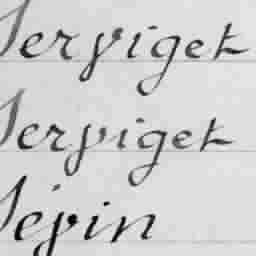 Serviget
Serviget
Sévin